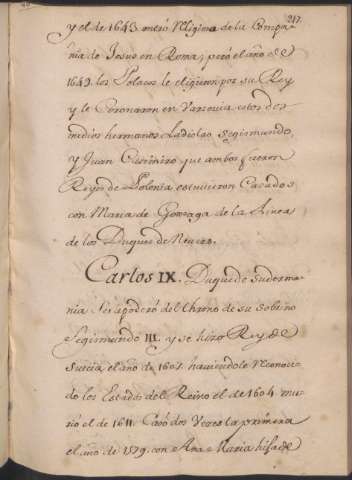 217.
y el de 1643 entró Religioso de la Compa
ñia de Jesus en Roma, peró el año de
1649. los Polacos le eligieron por su Rey
y le Coronaron en Varsovia estos dos
medios hermanos Ladislao Segismundo,
y Juan Casimiro que ambos fueron
Reyes de Polonia estuvieron Casados
con Maria de Gonzaga de la Linea
de los Duques de Nevers.
Carlos IX. Duque de Suderma
nia Se apoderó del throno de su sobrino
Segismundo III. y se hizo Rey de
Suecia el año de 1607 haviendole Reconoci
do los Estados del Reino el de 1604 mu
rio el de 1611. Casó dos Vezes la primera
el año de 1579. con Ana Maria hija de